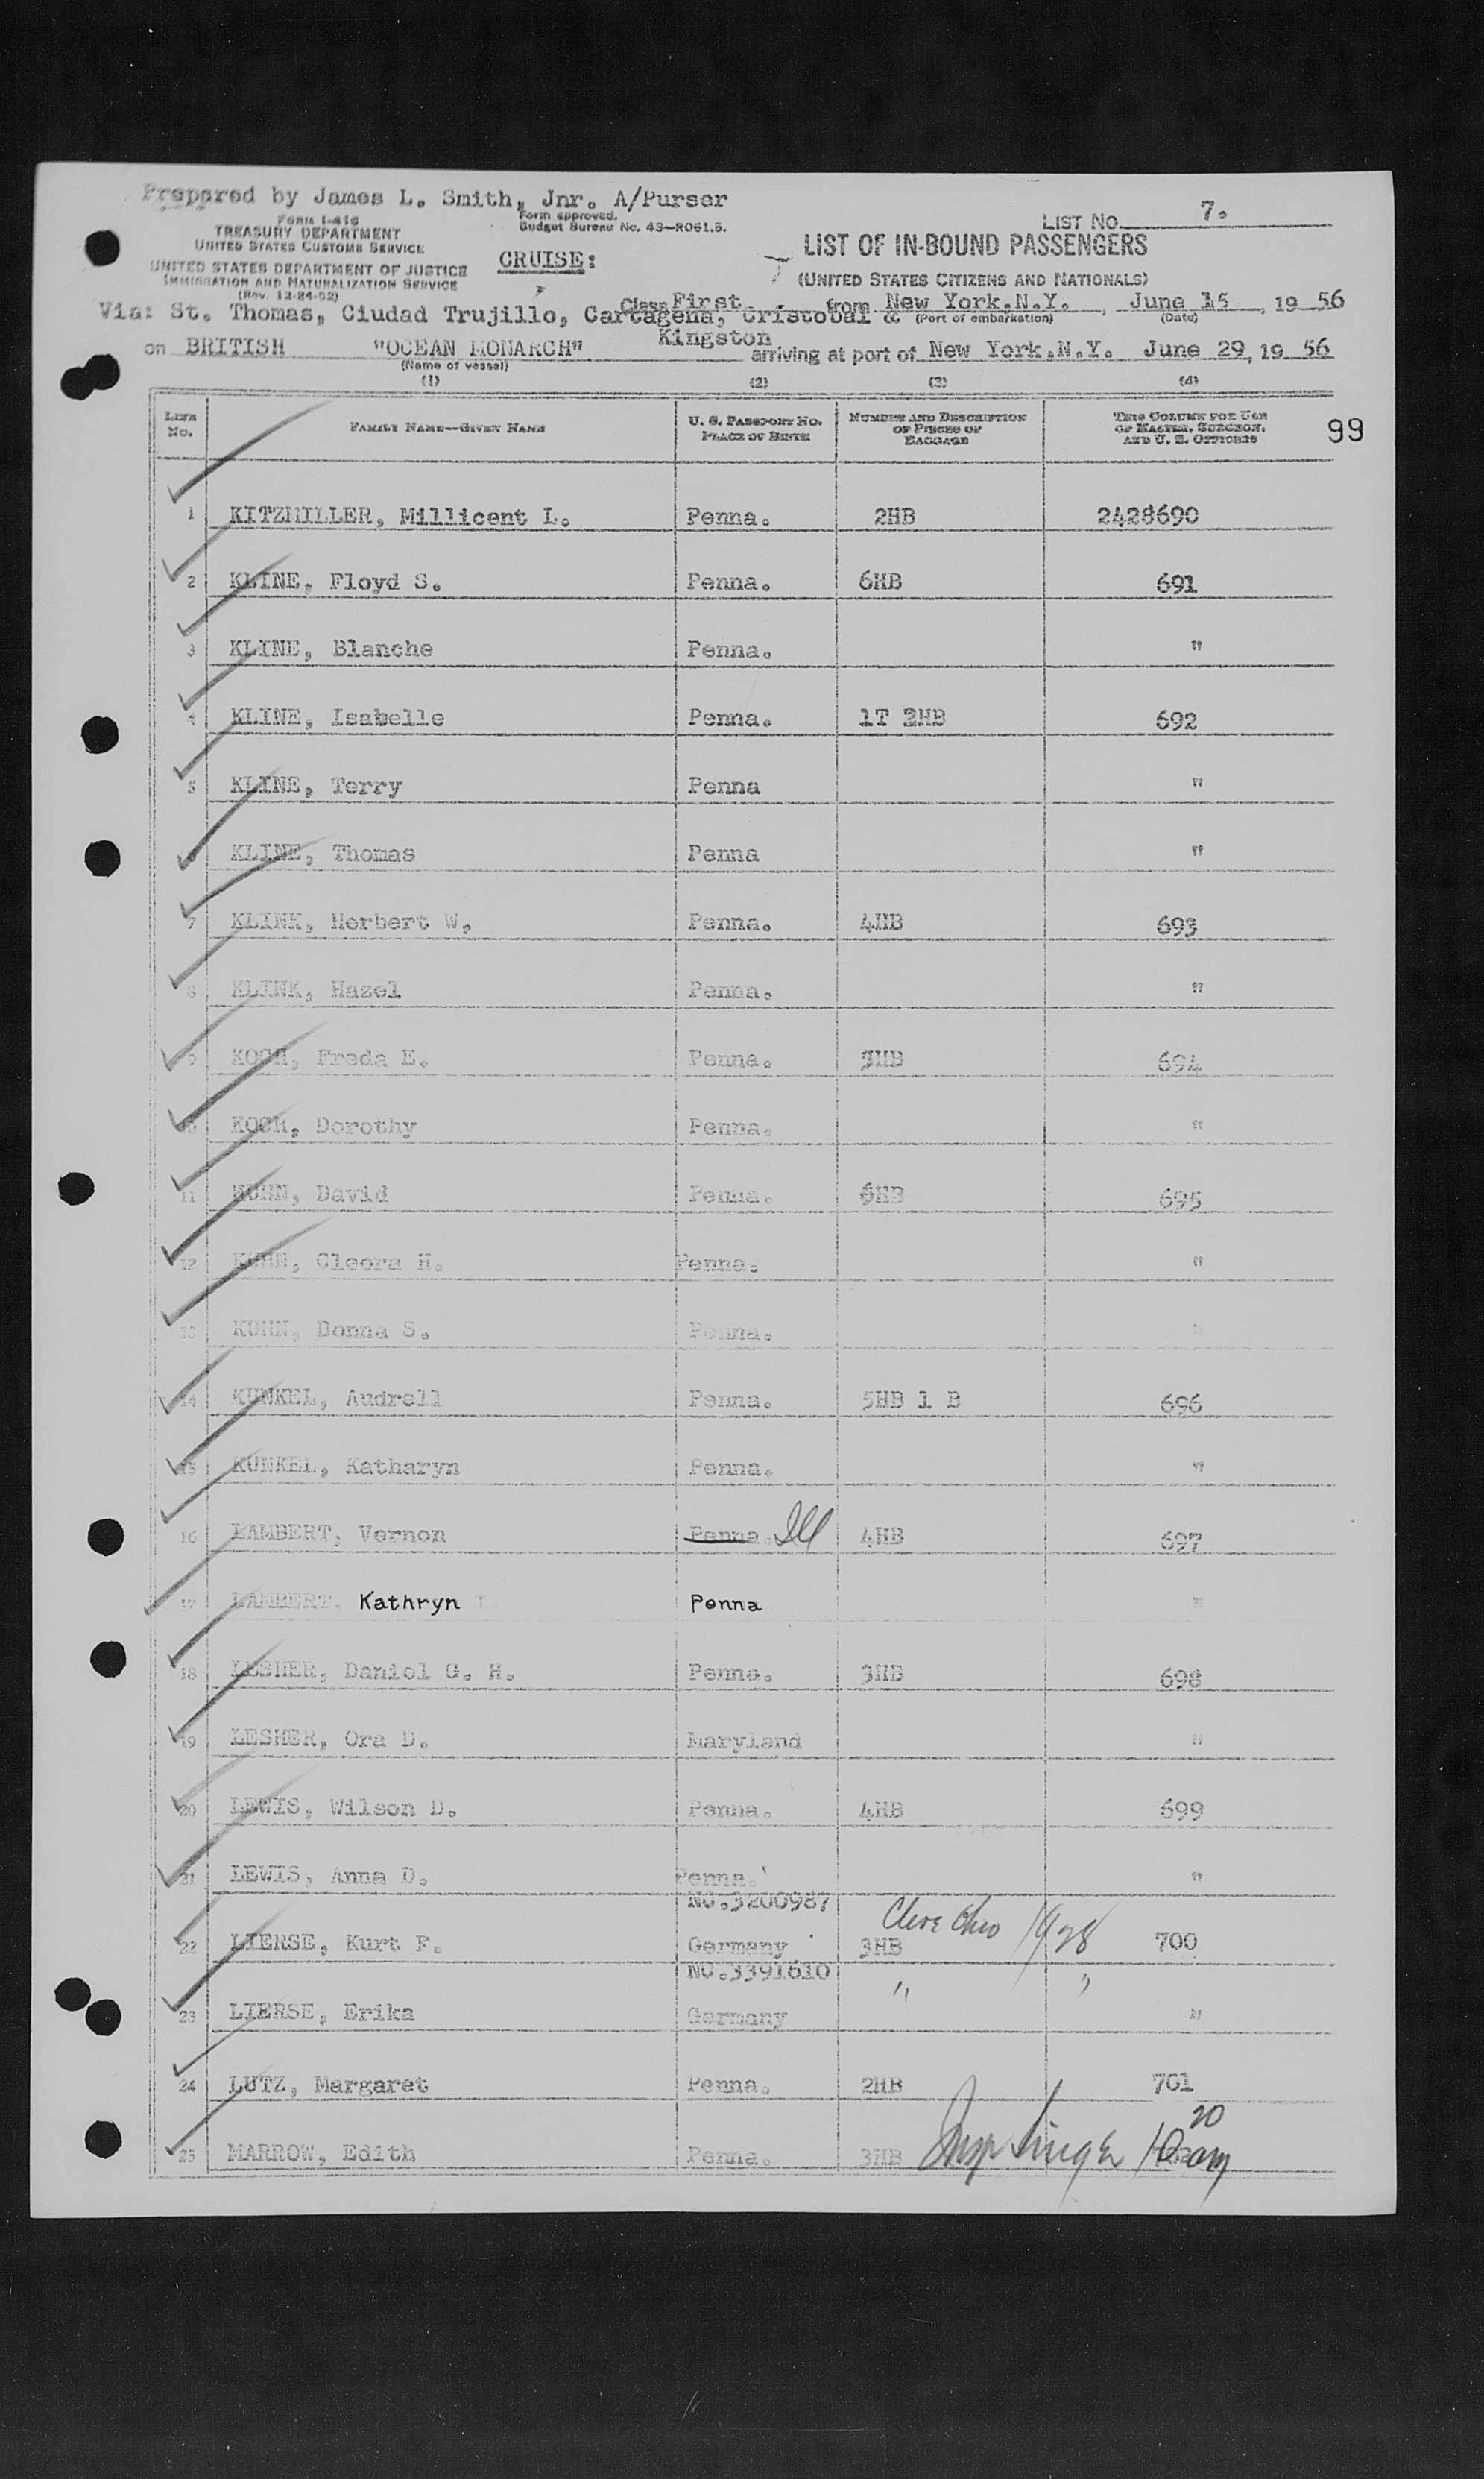 Prepared by James L. Smith, Jnr. A/Purser
FORM I-416
TREASURY DEPARTMENT
UNITED STATES CUSTOMS SERVICE
UNITED STATES DEPARTMENT OF JUSTICE
IMMIGRATION AND NATURALIZATION SERVICE
(Rev. 12-24-52)
Form approved.
Budget Bureau No. 43—R061.5.
CRUISE:
LIST NO. 7.
LIST OF IN-BOUND PASSENGERS
(UNITED STATES CITIZENS AND NATIONALS)
Class First from New York.N.Y., June 15, 19 56
Via: St. Thomas, Ciudad Trujillo, Cartagena, Cristobal & (Port of embarkation) (Date)
Kingston
on BRITISH "OCEAN MONARCH" arriving at port of New York.N.Y. June 29, 19 56
(Name of vessel)
(1) (2) (3) (4)
LINE No. FAMILY NAME—GIVEN NAME U. S. PASSPORT NO. PLACE OF BIRTH NUMBER AND DESCRIPTION OF PIECES OF BAGGAGE THIS COLUMN FOR USE OF MASTER, SURGEON, AND U. S. OFFICERS 99
1 KITZMILLER, Millicent L. Penna. 2HB 2428690
2 KLINE, Floyd S. Penna. 6HB 691
3 KLINE, Blanche Penna. "
4 KLINE, Isabelle Penna. 1T 2HB 692
5 KLINE, Terry Penna "
6 KLINE, Thomas Penna "
7 KLINK, Herbert W, Penna. 4HB 693
8 KLINK, Hazel Penna. "
9 KOCH, Freda E. Penna. 3HB 694
10 KOCH, Dorothy Penna. "
11 KUHN, David Penna. 6HB 695
12 KUHN, Cleora H. Penna. "
13 KUHN, Donna S. Penna. "
14 KUNKEL, Audrell Penna. 5HB 1 B 696
15 KUNKEL, Katharyn Penna. "
16 LAMBERT, Vernon Penna. Ill 4HB 697
17 LAMBERT, Kathryn Penna "
18 LESHER, Daniel G. H. Penna. 3HB 698
19 LESHER, Ora D. Maryland "
20 LEWIS, Wilson D. Penna. 4HB 699
21 LEWIS, Anna D. Penna. "
NO.3200987 Cleve Ohio 1928
22 LIERSE, Kurt F. Germany 3HB 700
NO.3391610 " "
23 LIERSE, Erika Germany "
24 LUTZ, Margaret Penna. 2HB 701
25 MARROW, Edith Penna. 3HB